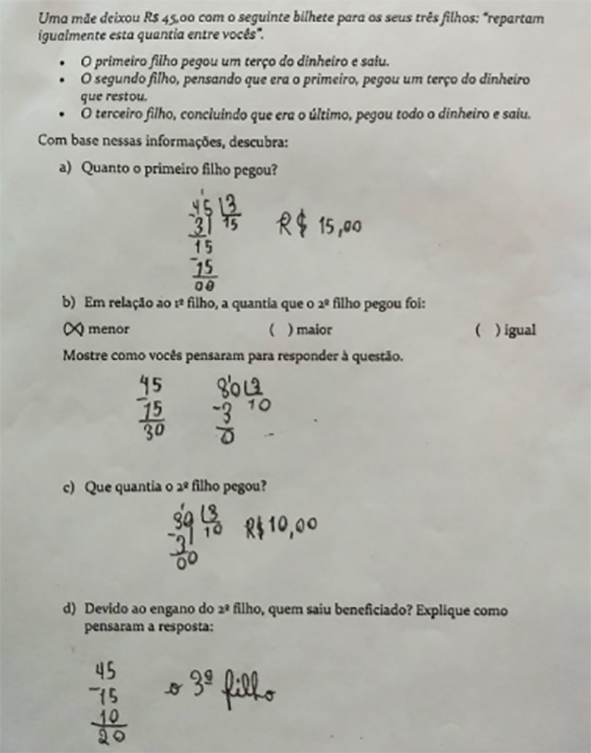 Uma mãe deixou R$ 45,00 com o seguinte bilhete para os seus três filhos: "repartam
igualmente esta quantia entre vocês".
• O primeiro filho pegou um terço do dinheiro e saiu.
• O segundo filho, pensando que era o primeiro, pegou um terço do dinheiro
que restou.
• O terceiro filho, concluindo que era o último, pegou todo o dinheiro e saiu.
Com base nessas informações, descubra:
a) Quanto o primeiro filho pegou?
45 3
-3 15 R$ 15,00
15
-15
00
b) Em relação ao 1º filho, a quantia que o 2º filho pegou foi:
(X) menor ( ) maior ( ) igual
Mostre como vocês pensaram para responder à questão.
45 30 3
-15 -3 10
30 0
c) Que quantia o 2º filho pegou?
30 3
-3 10 R$10,00
00
d) Devido ao engano do 2º filho, quem saiu beneficiado? Explique como
pensaram a resposta:
45
-15 o 3º filho
10
20